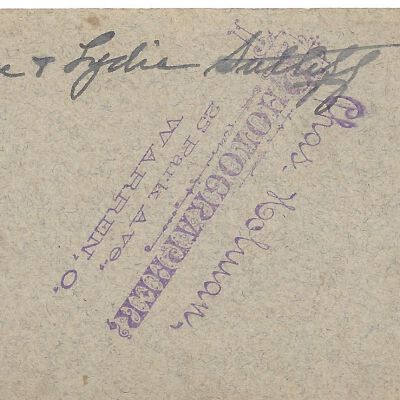 e & Lydia Sutliff
Chas. Holman,
PHOTOGRAPHER,
25 Park Ave.,
WARREN, O.